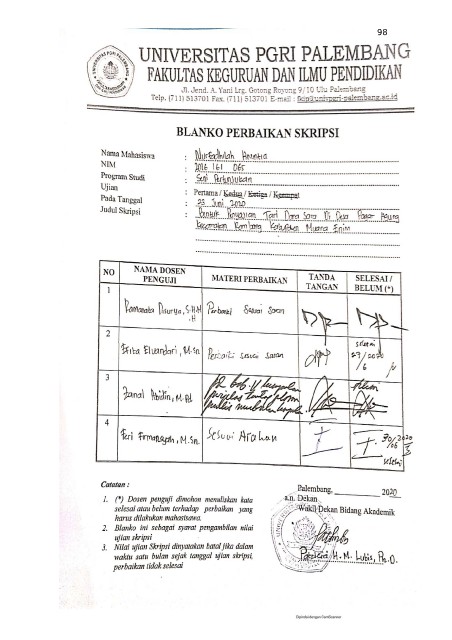 98
UNIVERSITAS PGRI PALEMBANG
FAKULTAS KEGURUAN DAN ILMU PENDIDIKAN
Jl. Jend. A. Yani Lrg. Gotong Royong 9/10 Ulu Palembang
Telp. (711) 513701 Fax. (711) 513701 E-mail : fkip@univpgri-palembang.ac.id
BLANKO PERBAIKAN SKRIPSI
Nama Mahasiswa :
NIM : 2016 161 065
Program Studi : Seni Pertunjukan
Ujian : Pertama / Kedua / Ketiga / Keempat
Pada Tanggal : 23 Juni 2020
Judul Skripsi : Bentuk Penyajian Tari Dara Di Desa Pagar Agung
Kecamatan Rambang Kabupaten Muara Enim
NO NAMA DOSEN PENGUJI MATERI PERBAIKAN TANDA TANGAN SELESAI / BELUM (*)
1 Perbaiki Sesuai Saran
2 Erita Elvandari, M.Sn Perbaiki sesuai saran selesai
3 Zainal Abidin, M.Pd
4 Feri Firmansyah, M.Sn. Sesuai Arahan selesai
Catatan :
1. (*) Dosen penguji dimohon menuliskan kata
selesai atau belum terhadap perbaikan yang
harus dilakukan mahasiswa.
2. Blanko ini sebagai syarat pengambilan nilai
ujian skripsi
3. Nilai ujian Skripsi dinyatakan batal jika dalam
waktu satu bulan sejak tanggal ujian skripsi,
perbaikan tidak selesai
Palembang, 2020
a.n. Dekan
Wakil Dekan Bidang Akademik
H. M. Lubis, Ph.D.